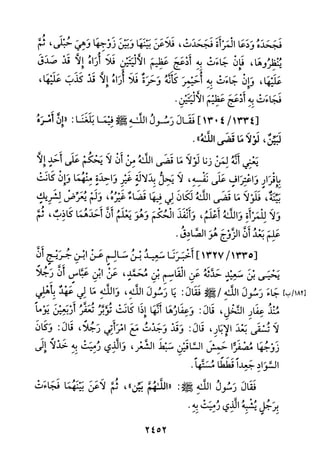 فَجَحَدَهُ وَدَعَا الْمَرْأَةَ فَجَحَدَتْ، فَلَاعَنَ بَيْنَهَا وَبَيْنَ زَوْجِهَا وَهِيَ حُبْلَى، ثُمَّ
يَنْظُرُوهَا، فَإِنْ جَاءَتْ بِهِ أَدْعَجَ عَظِيمَ الْأَلْيَتَيْنِ فَلَا أُرَاهُ إِلَّا قَدْ صَدَقَ
عَلَيْهَا، وَإِنْ جَاءَتْ بِهِ أُحَيْمِرَ كَأَنَّهُ وَحَرَةٌ فَلَا أُرَاهُ إِلَّا قَدْ كَذَبَ عَلَيْهَا،
فَجَاءَتْ بِهِ أَدْعَجَ عَظِيمَ الْأَلْيَتَيْنِ.
[١٣٣٤/ ١٣٠٤] فَقَالَ رَسُولُ اللَّهِ ﷺ فِيمَا بَلَغَنَا: «إِنَّ أَمْرَهُ
لَبَيِّنٌ، لَوْلَا مَا قَضَى اللَّهُ».
يَعْنِي أَنَّهُ لِمَنْ زنا لَوْلَا مَا قَضَى اللَّهُ مِنْ أَنْ لَا يَحْكُمَ عَلَى أَحَدٍ إِلَّا
بِإِقْرَارٍ وَاعْتِرَافٍ عَلَى نَفْسِهِ، لَا يَحِلُّ بِدَلَالَةِ غَيْرِ وَاحِدَةٍ مِنْهُمَا وَإِنْ كَانَتْ
بَيِّنَةً، فَلَوْلَا مَا قَضَى اللَّهُ لَكَانَ لِي فِيهَا قَضَاءٌ غَيْرُهُ، وَلَمْ يُعَرِّضْ لِشَرِيكٍ
وَلَا لِلْمَرْأَةِ وَاللَّهُ أَعْلَمُ، وَأَنْفَذَ الْحُكْمَ وَهُوَ يَعْلَمُ أَنَّ أَحَدَهُمَا كَاذِبٌ، ثُمَّ
عَلِمَ بَعْدُ أَنَّ الزَّوْجَ هُوَ الصَّادِقُ.
[١٣٣٥/ ١٣٢٧] أَخْبَرَنَا سَعِيدُ بْنُ سَالِمٍ عَنْ ابْنِ جُرَيْجٍ أَنَّ
يَحْيَى بْنَ سَعِيدٍ حَدَّثَهُ عَنِ الْقَاسِمِ بْنِ مُحَمَّدٍ، عَنْ ابْنِ عَبَّاسٍ أَنَّ رَجُلًا
جَاءَ رَسُولَ اللَّهِ / ﷺ فَقَالَ: يَا رَسُولَ اللَّهِ، وَاللَّهِ مَا لِي عَهْدٌ بِأَهْلِي [١٨٢/ب]
مُنْذُ عِفَارِ النَّخْلِ، قَالَ: وَعِفَارُهَا أَنَّهَا إِذَا كَانَتْ تُؤَبَّرُ تُعَفَّرُ أَرْبَعِينَ يَوْماً
لَا تُسْقَى بَعْدَ الْإِبَارِ، قَالَ: وَقَدْ وَجَدْتُ مَعَ امْرَأَتِي رَجُلًا، قَالَ: وَكَانَ
زَوْجُهَا مُصْفَرًّا حَمْشَ السَّاقَيْنِ سَبْطَ الشَّعْرِ، وَالَّذِي رُمِيَتْ بِهِ خَدْلًا إِلَى
السَّوَادِ جَعداً قَطَطاً مُسَتَّهاً.
فَقَالَ رَسُولُ اللَّهِ ﷺ: «اللَّهُمَّ بَيِّنْ»، ثُمَّ لَاعَنَ بَيْنَهُمَا فَجَاءَتْ
بِرَجُلٍ يُشْبِهُ الَّذِي رُمِيَتْ بِهِ.
٢٤٥٢